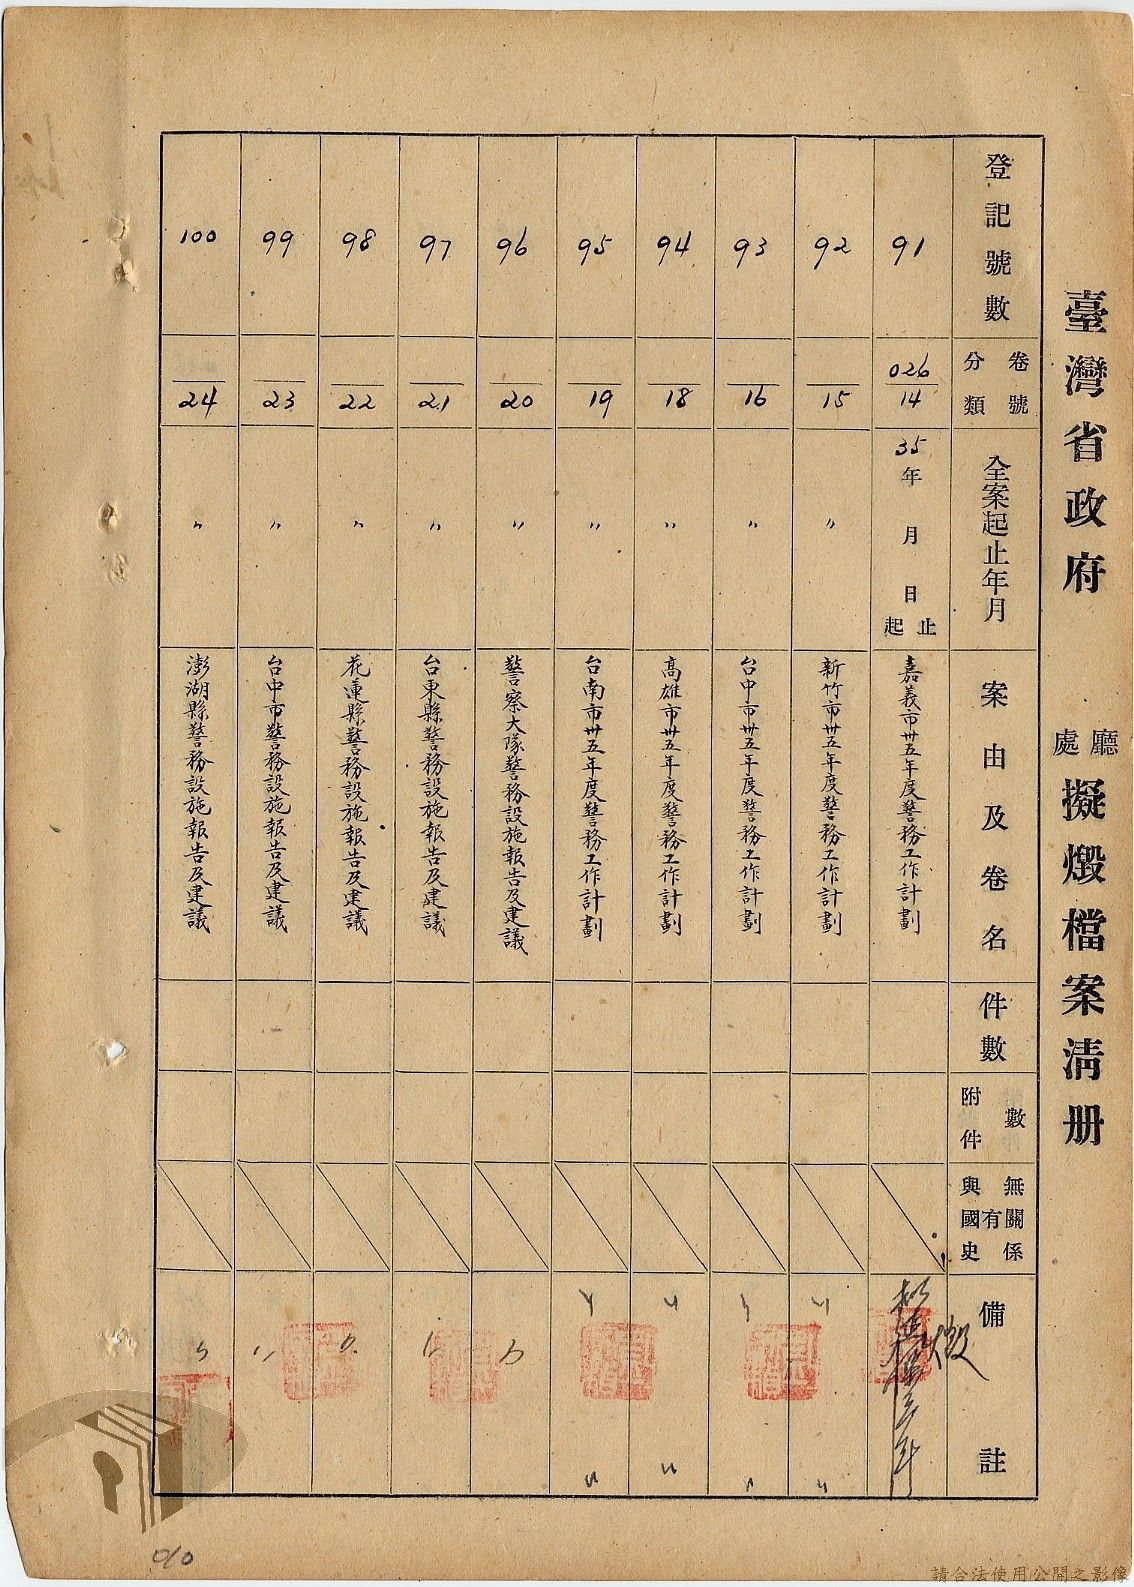 臺灣省政府 廳處 擬燬檔案清册
登記號數
卷號分類
全案起止年月
案由及卷名
件數
附件數
與國史有無關係
備註
91
026
14
35年月日起止
嘉義市卅五年度警務工作計劃
燬
92
15
〃
新竹市卅五年度警務工作計劃
〃
〃
93
16
〃
台中市卅五年度警務工作計劃
〃
〃
94
18
〃
高雄市卅五年度警務工作計劃
〃
〃
95
19
〃
台南市卅五年度警務工作計劃
〃
〃
96
20
〃
警察大隊警務設施報告及建議
〃
97
21
〃
台東縣警務設施報告及建議
〃
98
22
〃
花蓮縣警務設施報告及建議
〃
99
23
〃
台中市警務設施報告及建議
〃
100
24
〃
澎湖縣警務設施報告及建議
〃
請合法使用公開之影像